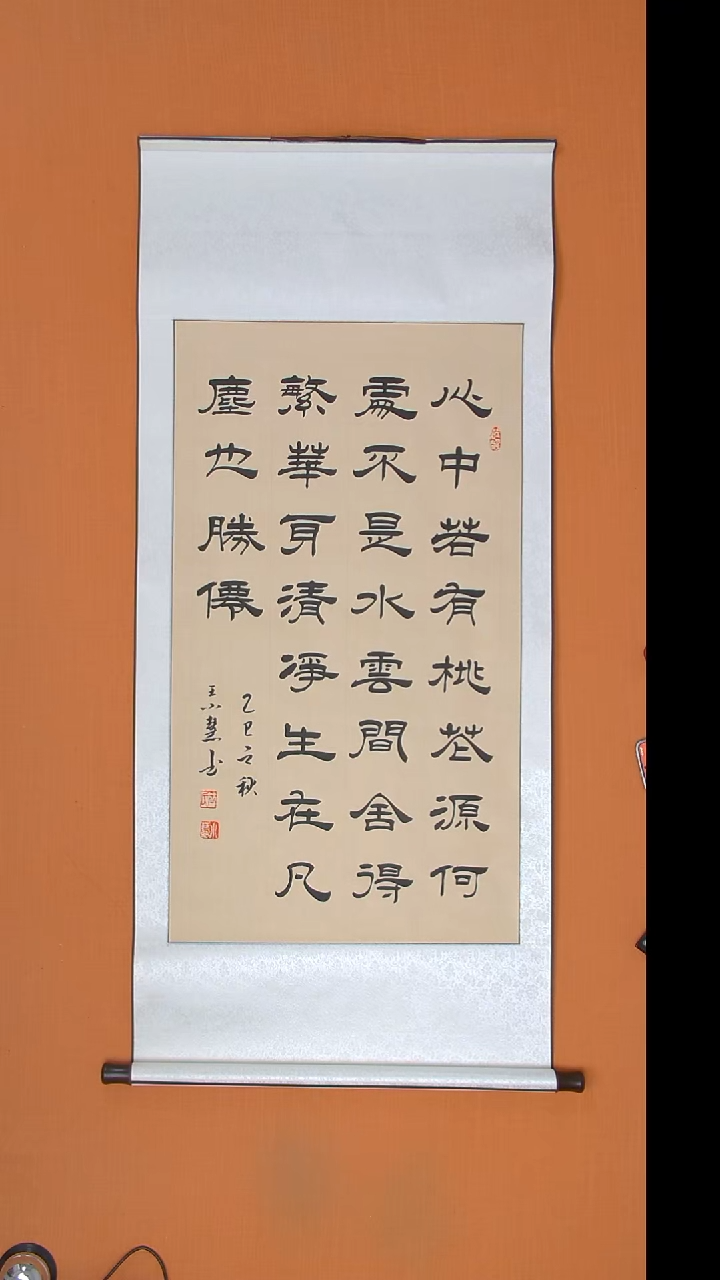 心中若有桃花源何
處不是水雲間舍得
繁華身清凈生在凡
塵也勝僊
乙巳之秋
王小慧书